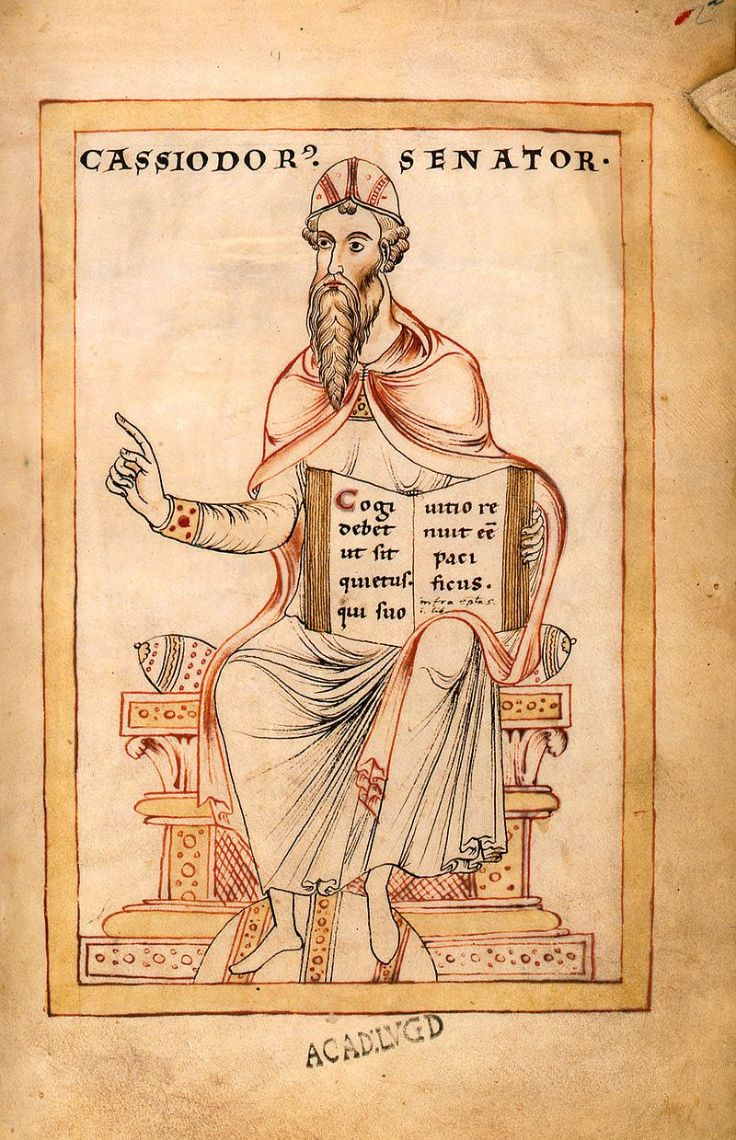 CASSIODORꝰ. SENATOR.
Cogi
debet
ut sit
quietus.
qui suo
uitio re
nuit eē
paci
ficus.
infra
ACAD. LVGD